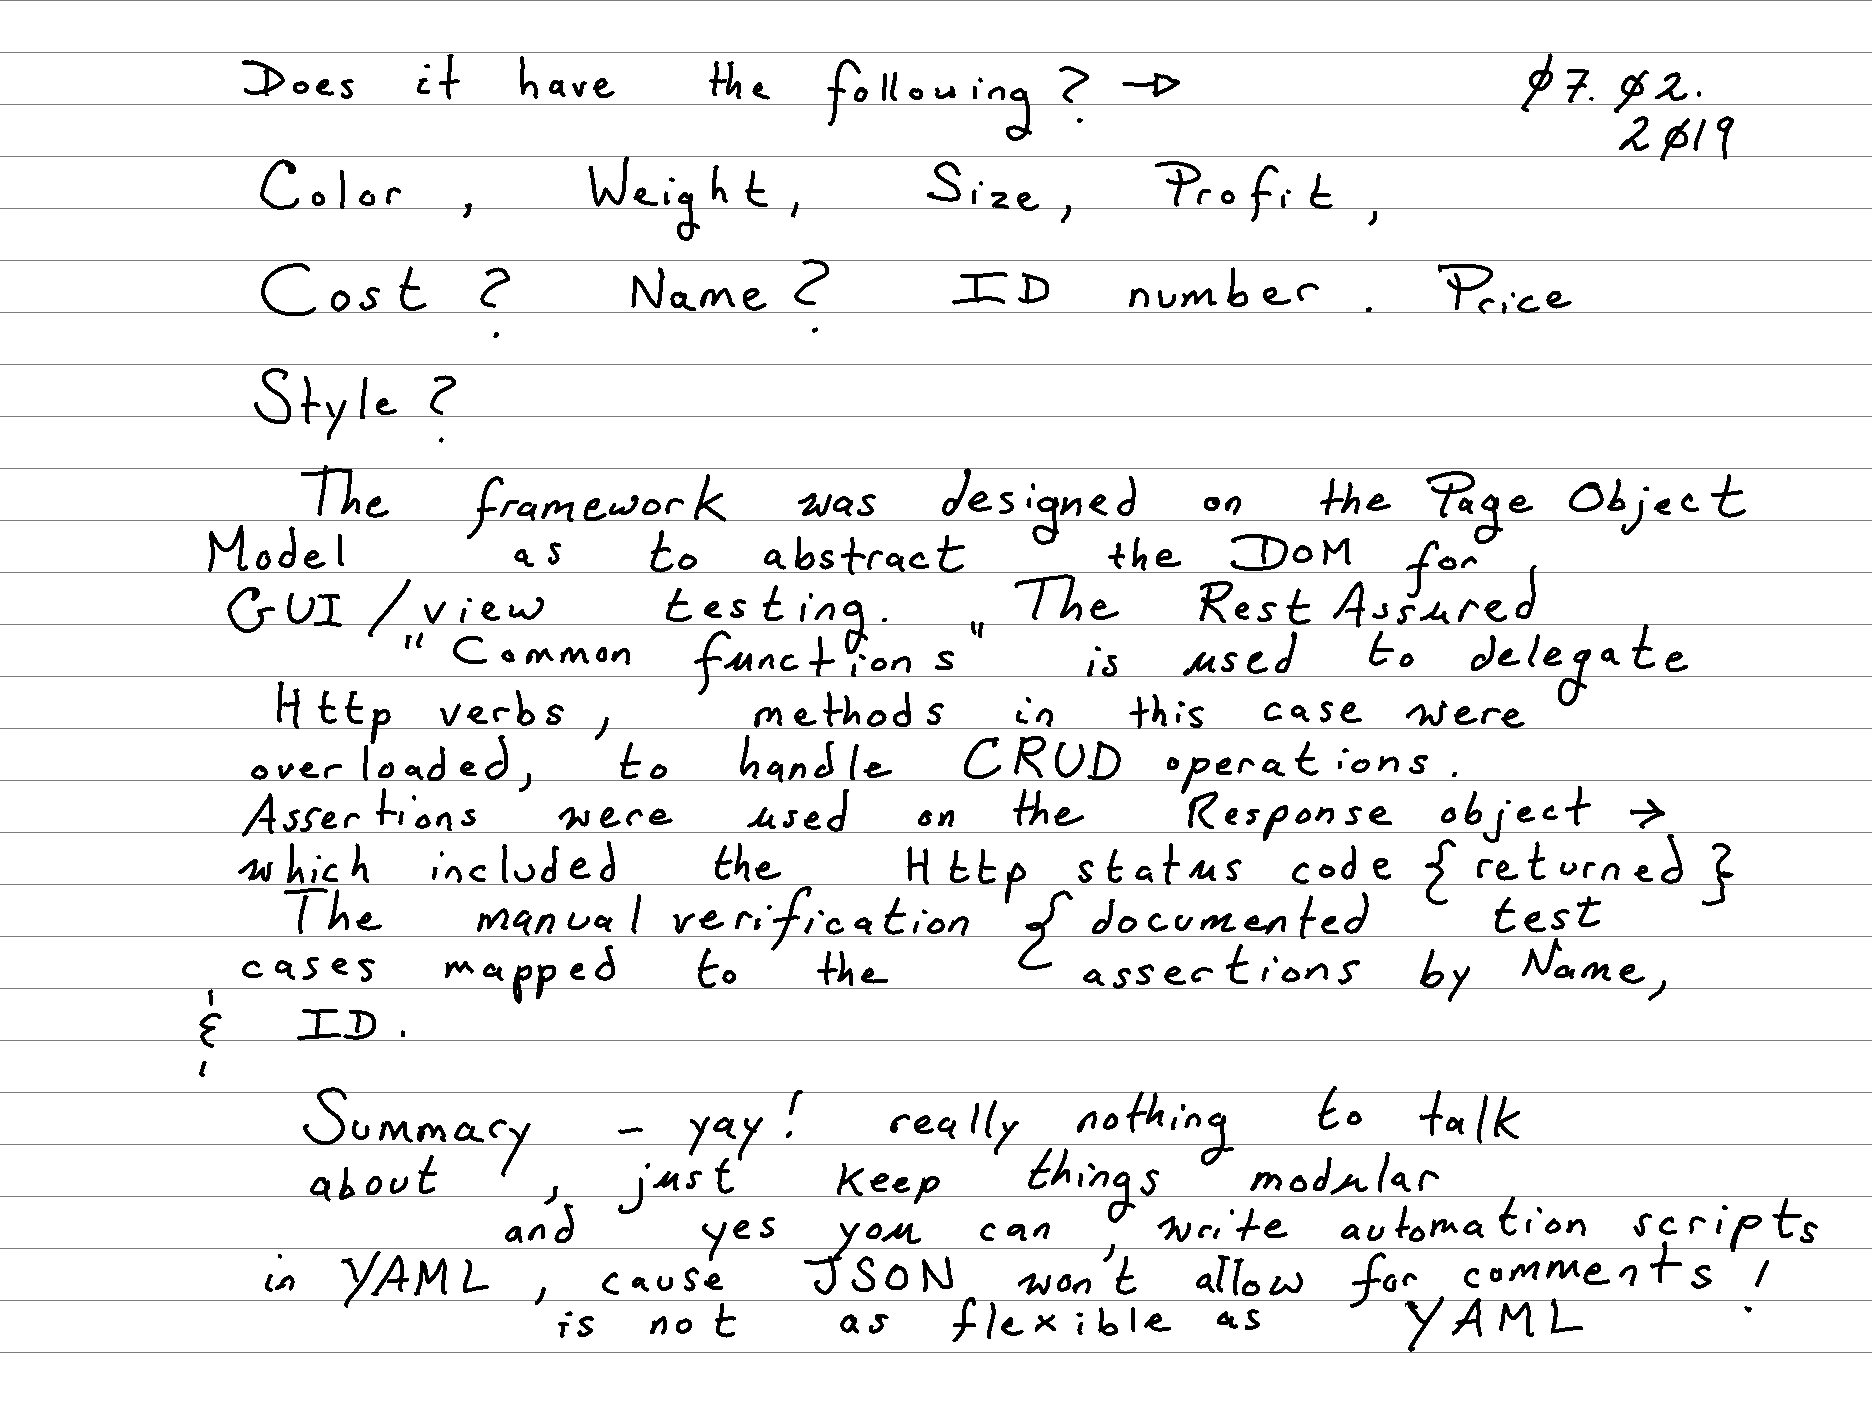 Does it have the following? → 07.02.
2019
Color, Weight, Size, Profit,
Cost? Name? ID number. Price
Style?
The framework was designed on the Page Object
Model as to abstract the DOM for
GUI/view testing. The Rest Assured
"Common functions" is used to delegate
Http verbs, methods in this case were
overloaded, to handle CRUD operations.
Assertions were used on the Response object →
which included the Http status code {returned}
The manual verification { documented test
cases mapped to the assertions by Name,
& ID.
Summary - yay! really nothing to talk
about, just keep things modular
and yes you can, write automation scripts
in YAML, cause JSON won't allow for comments!
is not as flexible as YAML